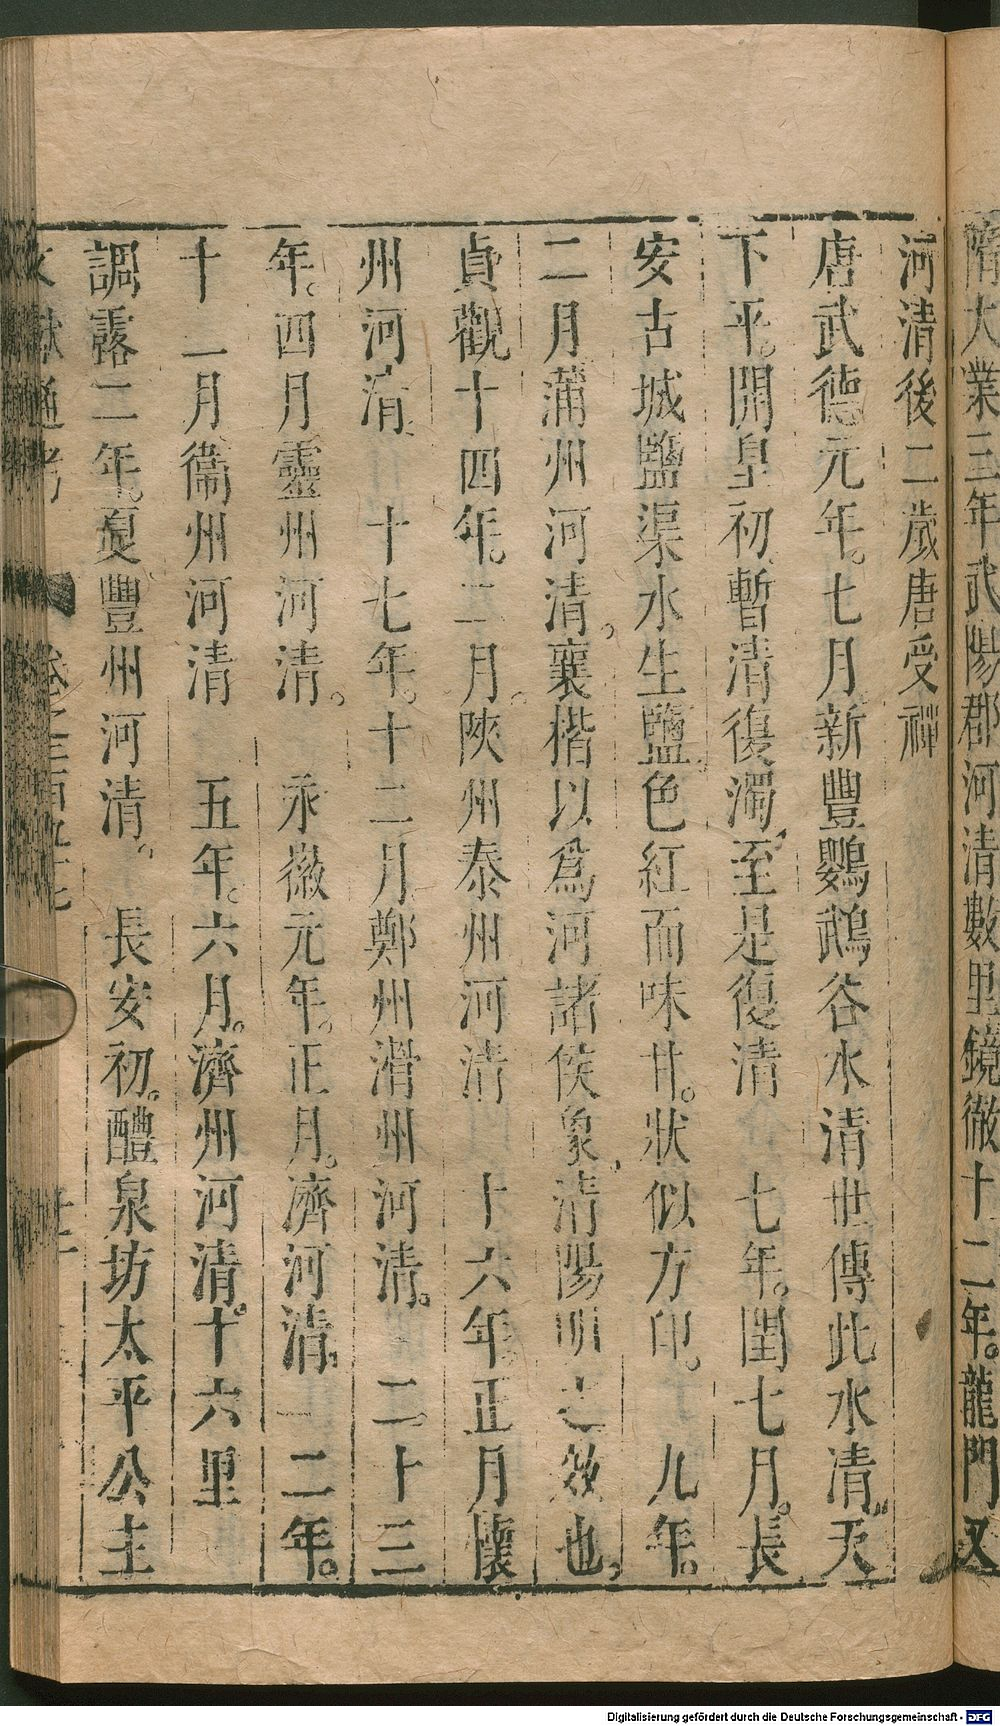 隋大業三年武陽郡河清數里鏡徹十二年龍門又
河清後二歲唐受禪
唐武德元年七月新豐鸚鵡谷水清世傳此水清天
下平開皇初暫清復濁至是復清　七年閏七月長
安古城鹽渠水生鹽色紅而味甘狀似方印　九年
二月蒲州河清襄楷以爲河諸侯象清陽明之效也
貞觀十四年二月陝州泰州河清　十六年正月懷
州河清　十七年十二月鄭州滑州河清　二十三
年四月靈州河清　永徽元年正月濟河清　二年
十一月衞州河清　五年六月濟州河清十六里
調露二年夏豐州河清　長安初醴泉坊太平公主
文獻通考　卷之三百九十七
Digitalisierung gefördert durch die Deutsche Forschungsgemeinschaft - DFG